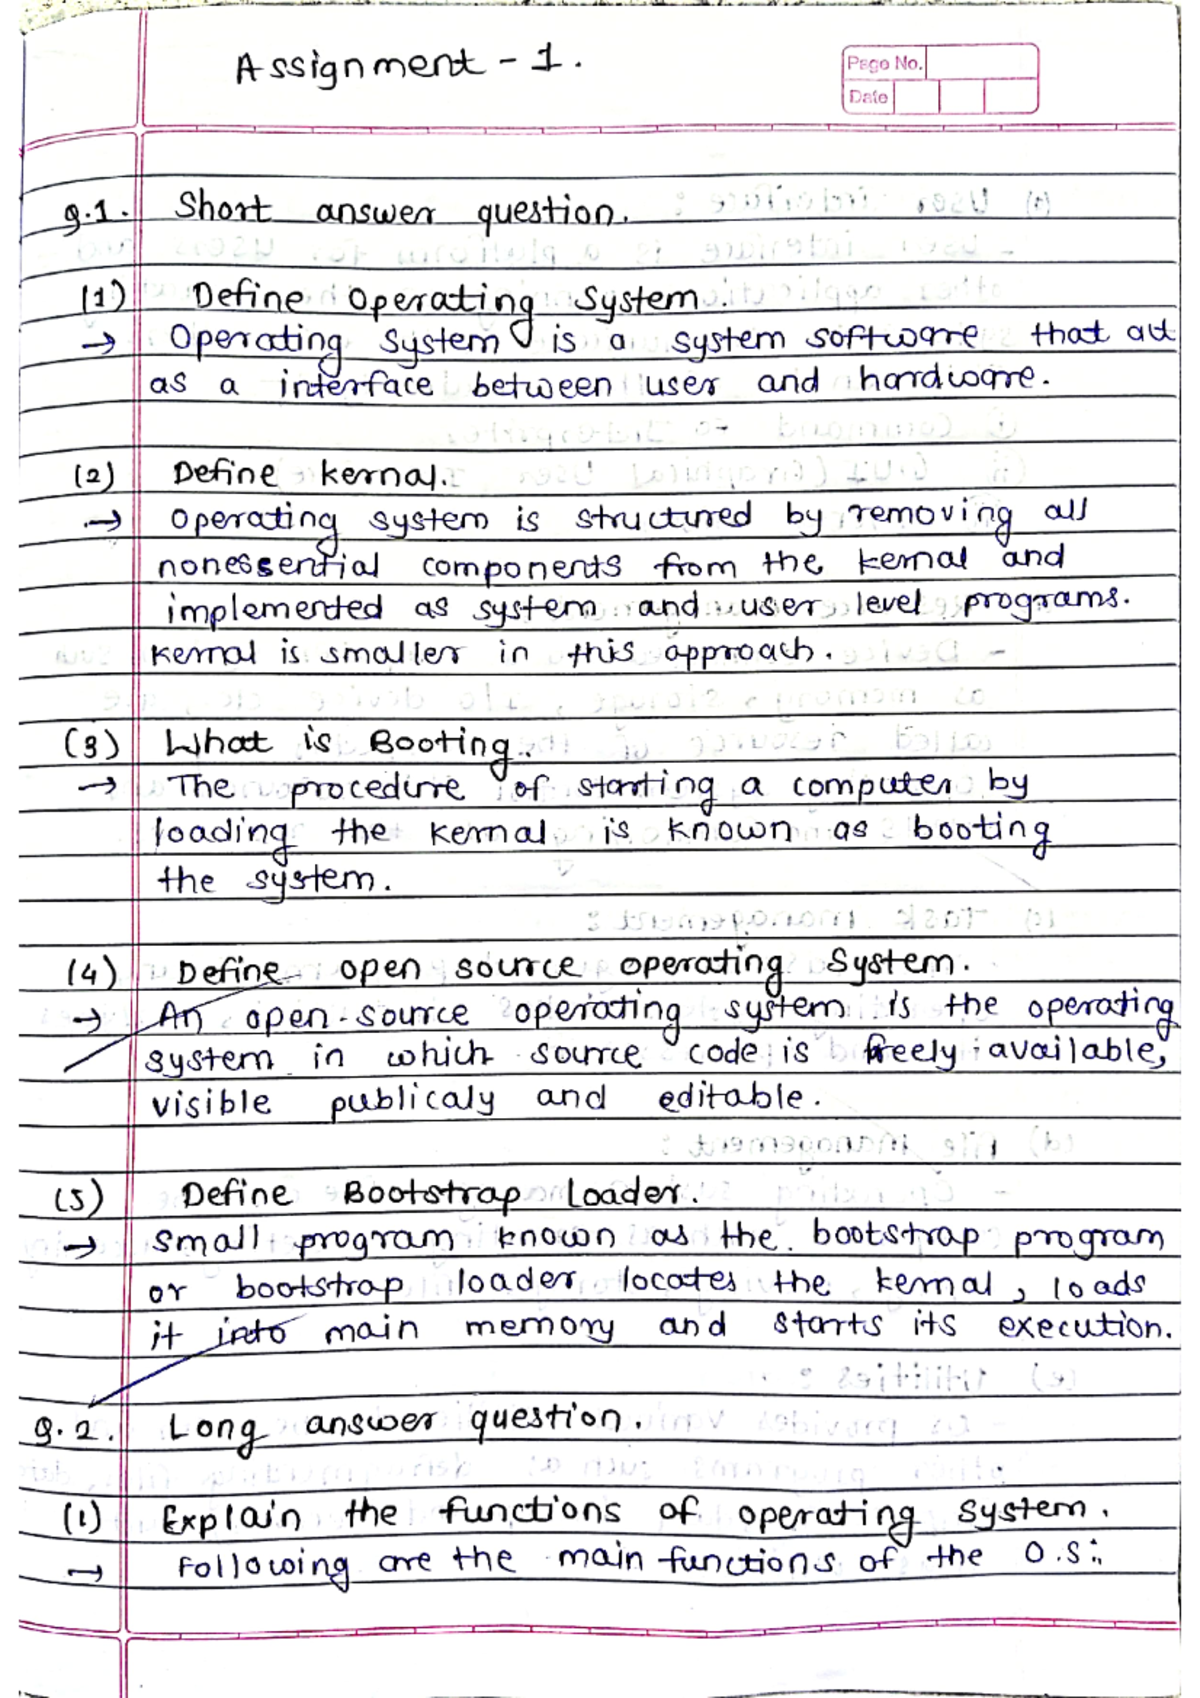 Assignment - 1.
Page No.
Date
Q.1. Short answer question.
(1) Define Operating System.
→ Operating System is a system software that act
as a interface between user and hardware.
(2) Define kernal.
→ Operating system is structured by removing all
nonessential components from the kernal and
implemented as system and user level programs.
kernal is smaller in this approach.
(3) What is Booting.
→ The procedure of starting a computer by
loading the kernal is known as booting
the system.
(4) Define open source operating System.
→ An open-source operating system is the operating
system in which source code is freely available,
visible publicaly and editable.
(5) Define Bootstrap Loader.
→ Small program known as the bootstrap program
or bootstrap loader locates the kernal, loads
it into main memory and starts its execution.
Q.2. Long answer question.
(1) Explain the functions of operating System.
→ Following are the main functions of the O.S: